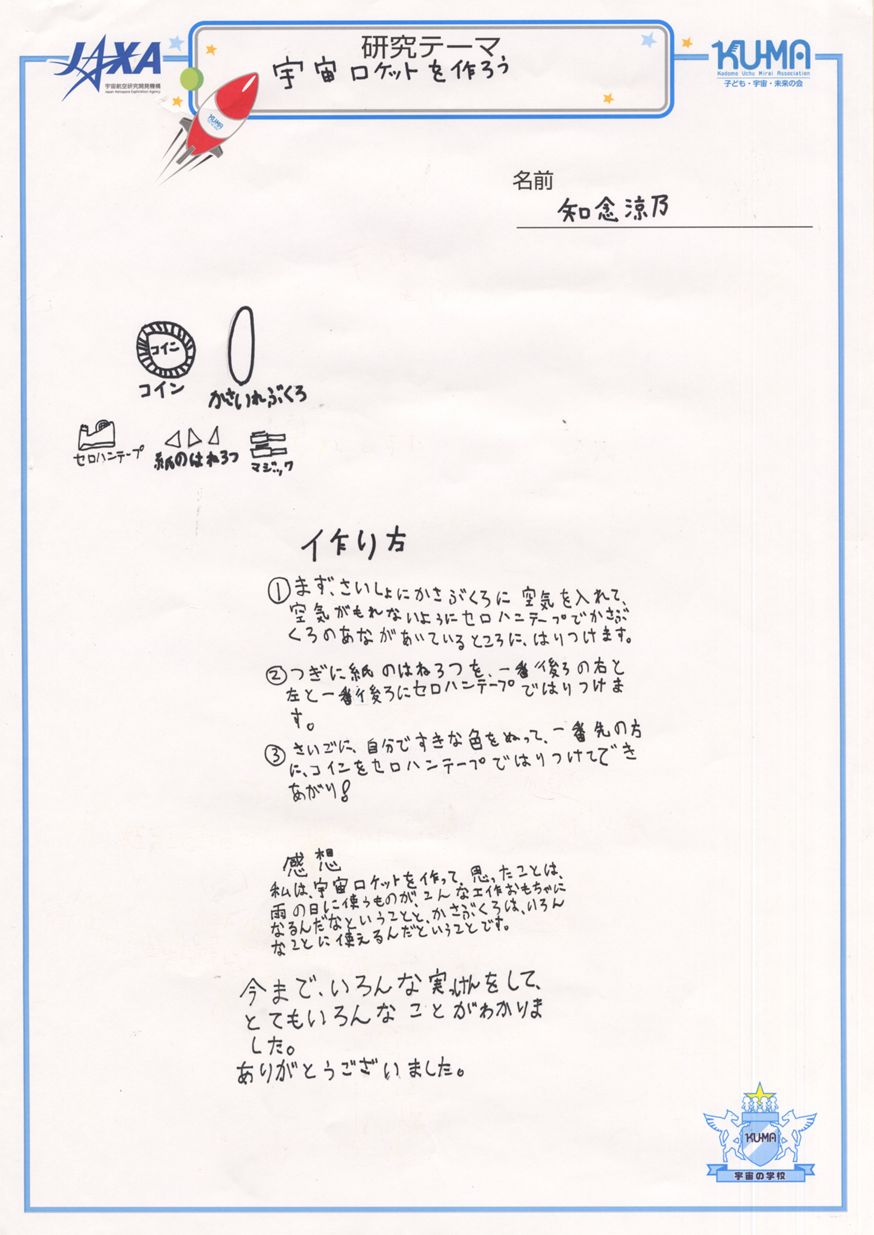 JAXA
宇宙航空研究開発機構
Japan Aerospace Exploration Agency
研究テーマ
宇宙ロケットを作ろう
KU-MA
Kodomo Uchu Mirai Association
子ども・宇宙・未来の会
KU-MA
名前
知念涼乃
コイン
コイン
かさいれぶくろ
セロハンテープ
紙のはね3つ
マジック
作り方
①まず、さいしょにかさぶくろに空気を入れて、
空気がもれないようにセロハンテープでかさぶ
くろのあながあいているところに、はりつけます。
②つぎに紙のはね3つを、一番後ろの右と
左と一番後ろにセロハンテープではりつけま
す。
③さいごに、自分ですきな色をぬって、一番先の方
に、コインをセロハンテープではりつけてでき
あがり!
感想
私は、宇宙ロケットを作って、思ったことは、
雨の日に使うものが、こんな工作おもちゃに
なるんだなということと、かさぶくろは、いろん
なことに使えるんだということです。
今まで、いろんな実っけんをして、
とてもいろんなことがわかりま
した。
ありがとうございました。
KU-MA
宇宙の学校